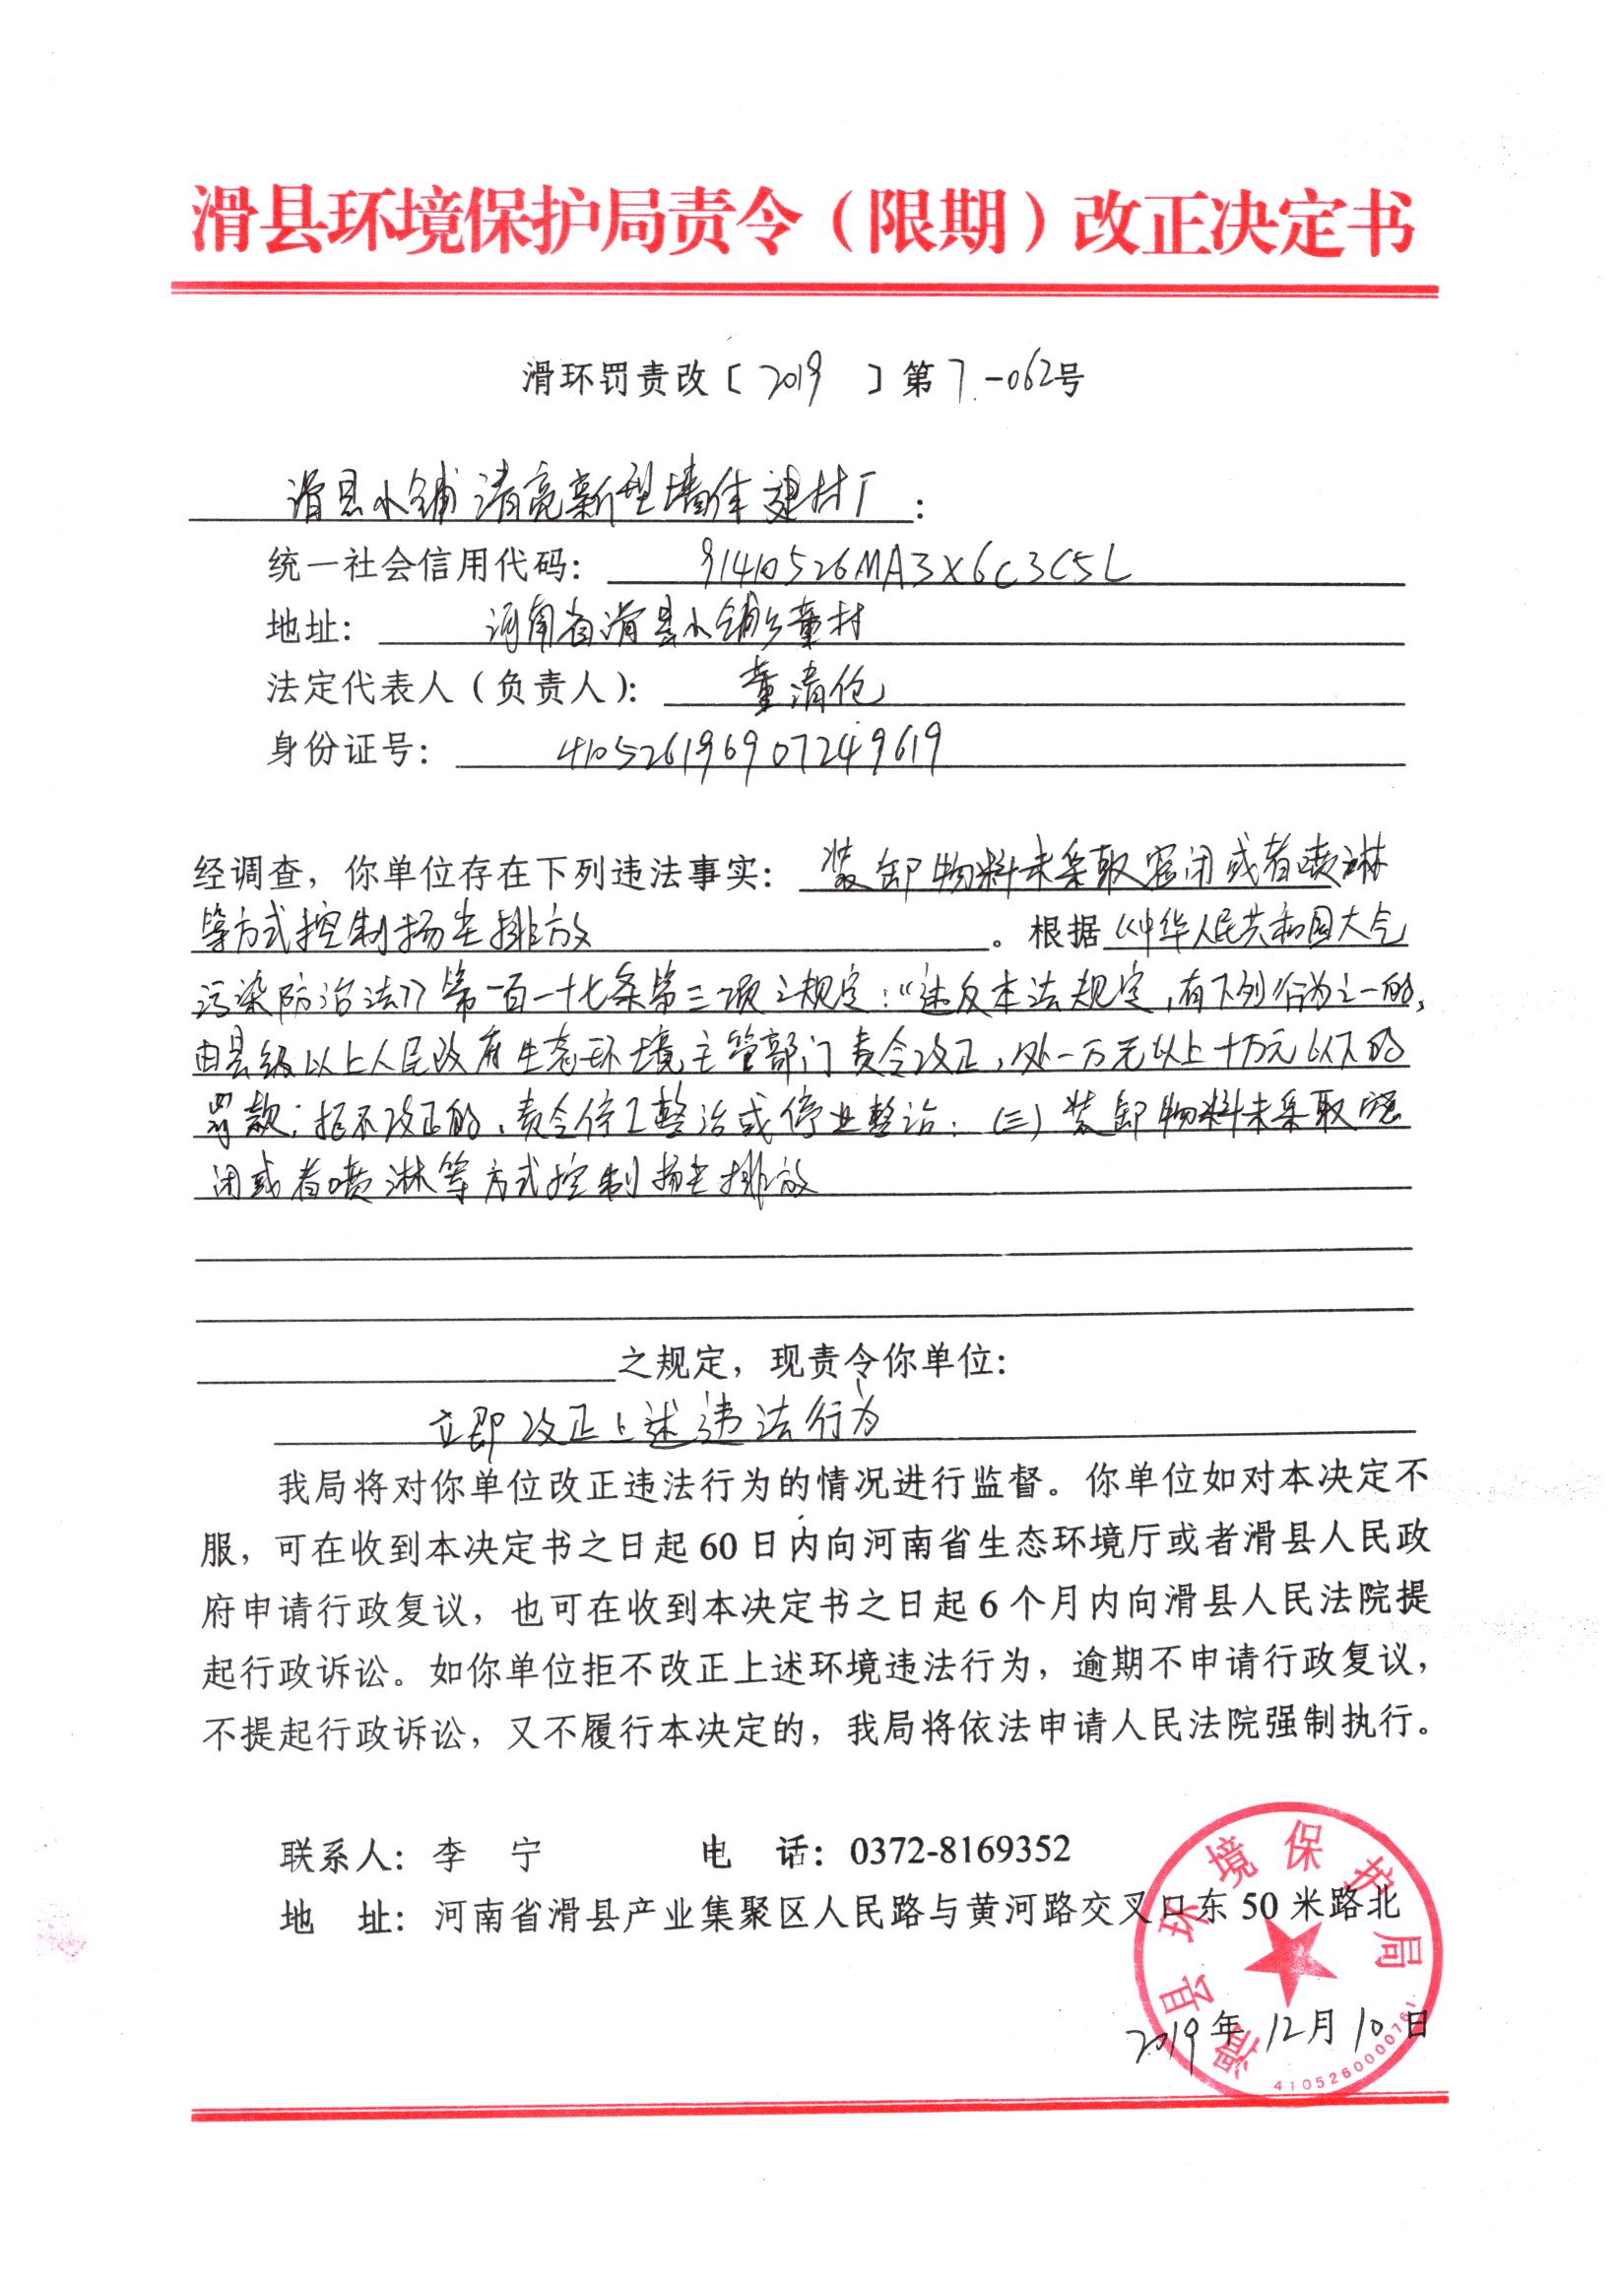 滑县环境保护局责令（限期）改正决定书
滑环罚责改〔2019〕第7-062号
滑县小铺清亮新型墙体建材厂：
统一社会信用代码：91410526MA3X6C3C5L
地址：河南省滑县小铺乡董村
法定代表人（负责人）：董清伦
身份证号：410526196907249619
经调查，你单位存在下列违法事实：装卸物料未采取密闭或者喷淋
等方式控制扬尘排放。根据《中华人民共和国大气
污染防治法》第一百一十七条第三项之规定："违反本法规定，有下列行为之一的，
由县级以上人民政府生态环境主管部门责令改正，处一万元以上十万元以下的
罚款；拒不改正的，责令停工整治或停业整治：（三）装卸物料未采取密
闭或者喷淋等方式控制扬尘排放
之规定，现责令你单位：
立即改正上述违法行为
我局将对你单位改正违法行为的情况进行监督。你单位如对本决定不
服，可在收到本决定书之日起60日内向河南省生态环境厅或者滑县人民政
府申请行政复议，也可在收到本决定书之日起6个月内向滑县人民法院提
起行政诉讼。如你单位拒不改正上述环境违法行为，逾期不申请行政复议，
不提起行政诉讼，又不履行本决定的，我局将依法申请人民法院强制执行。
联系人：李 宁 电 话：0372-8169352
地 址：河南省滑县产业集聚区人民路与黄河路交叉口东50米路北
滑县环境保护局
2019年12月10日
4105260000761